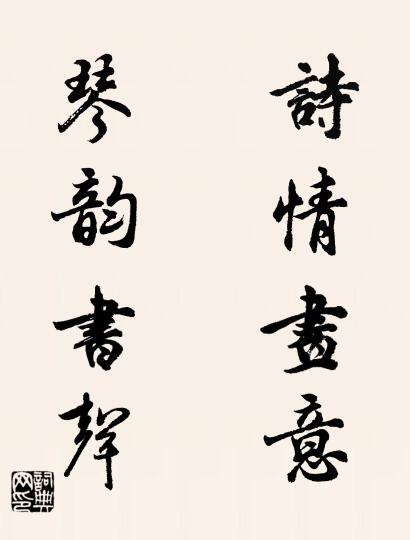 詩情畫意
琴韵書聲
詞典网印